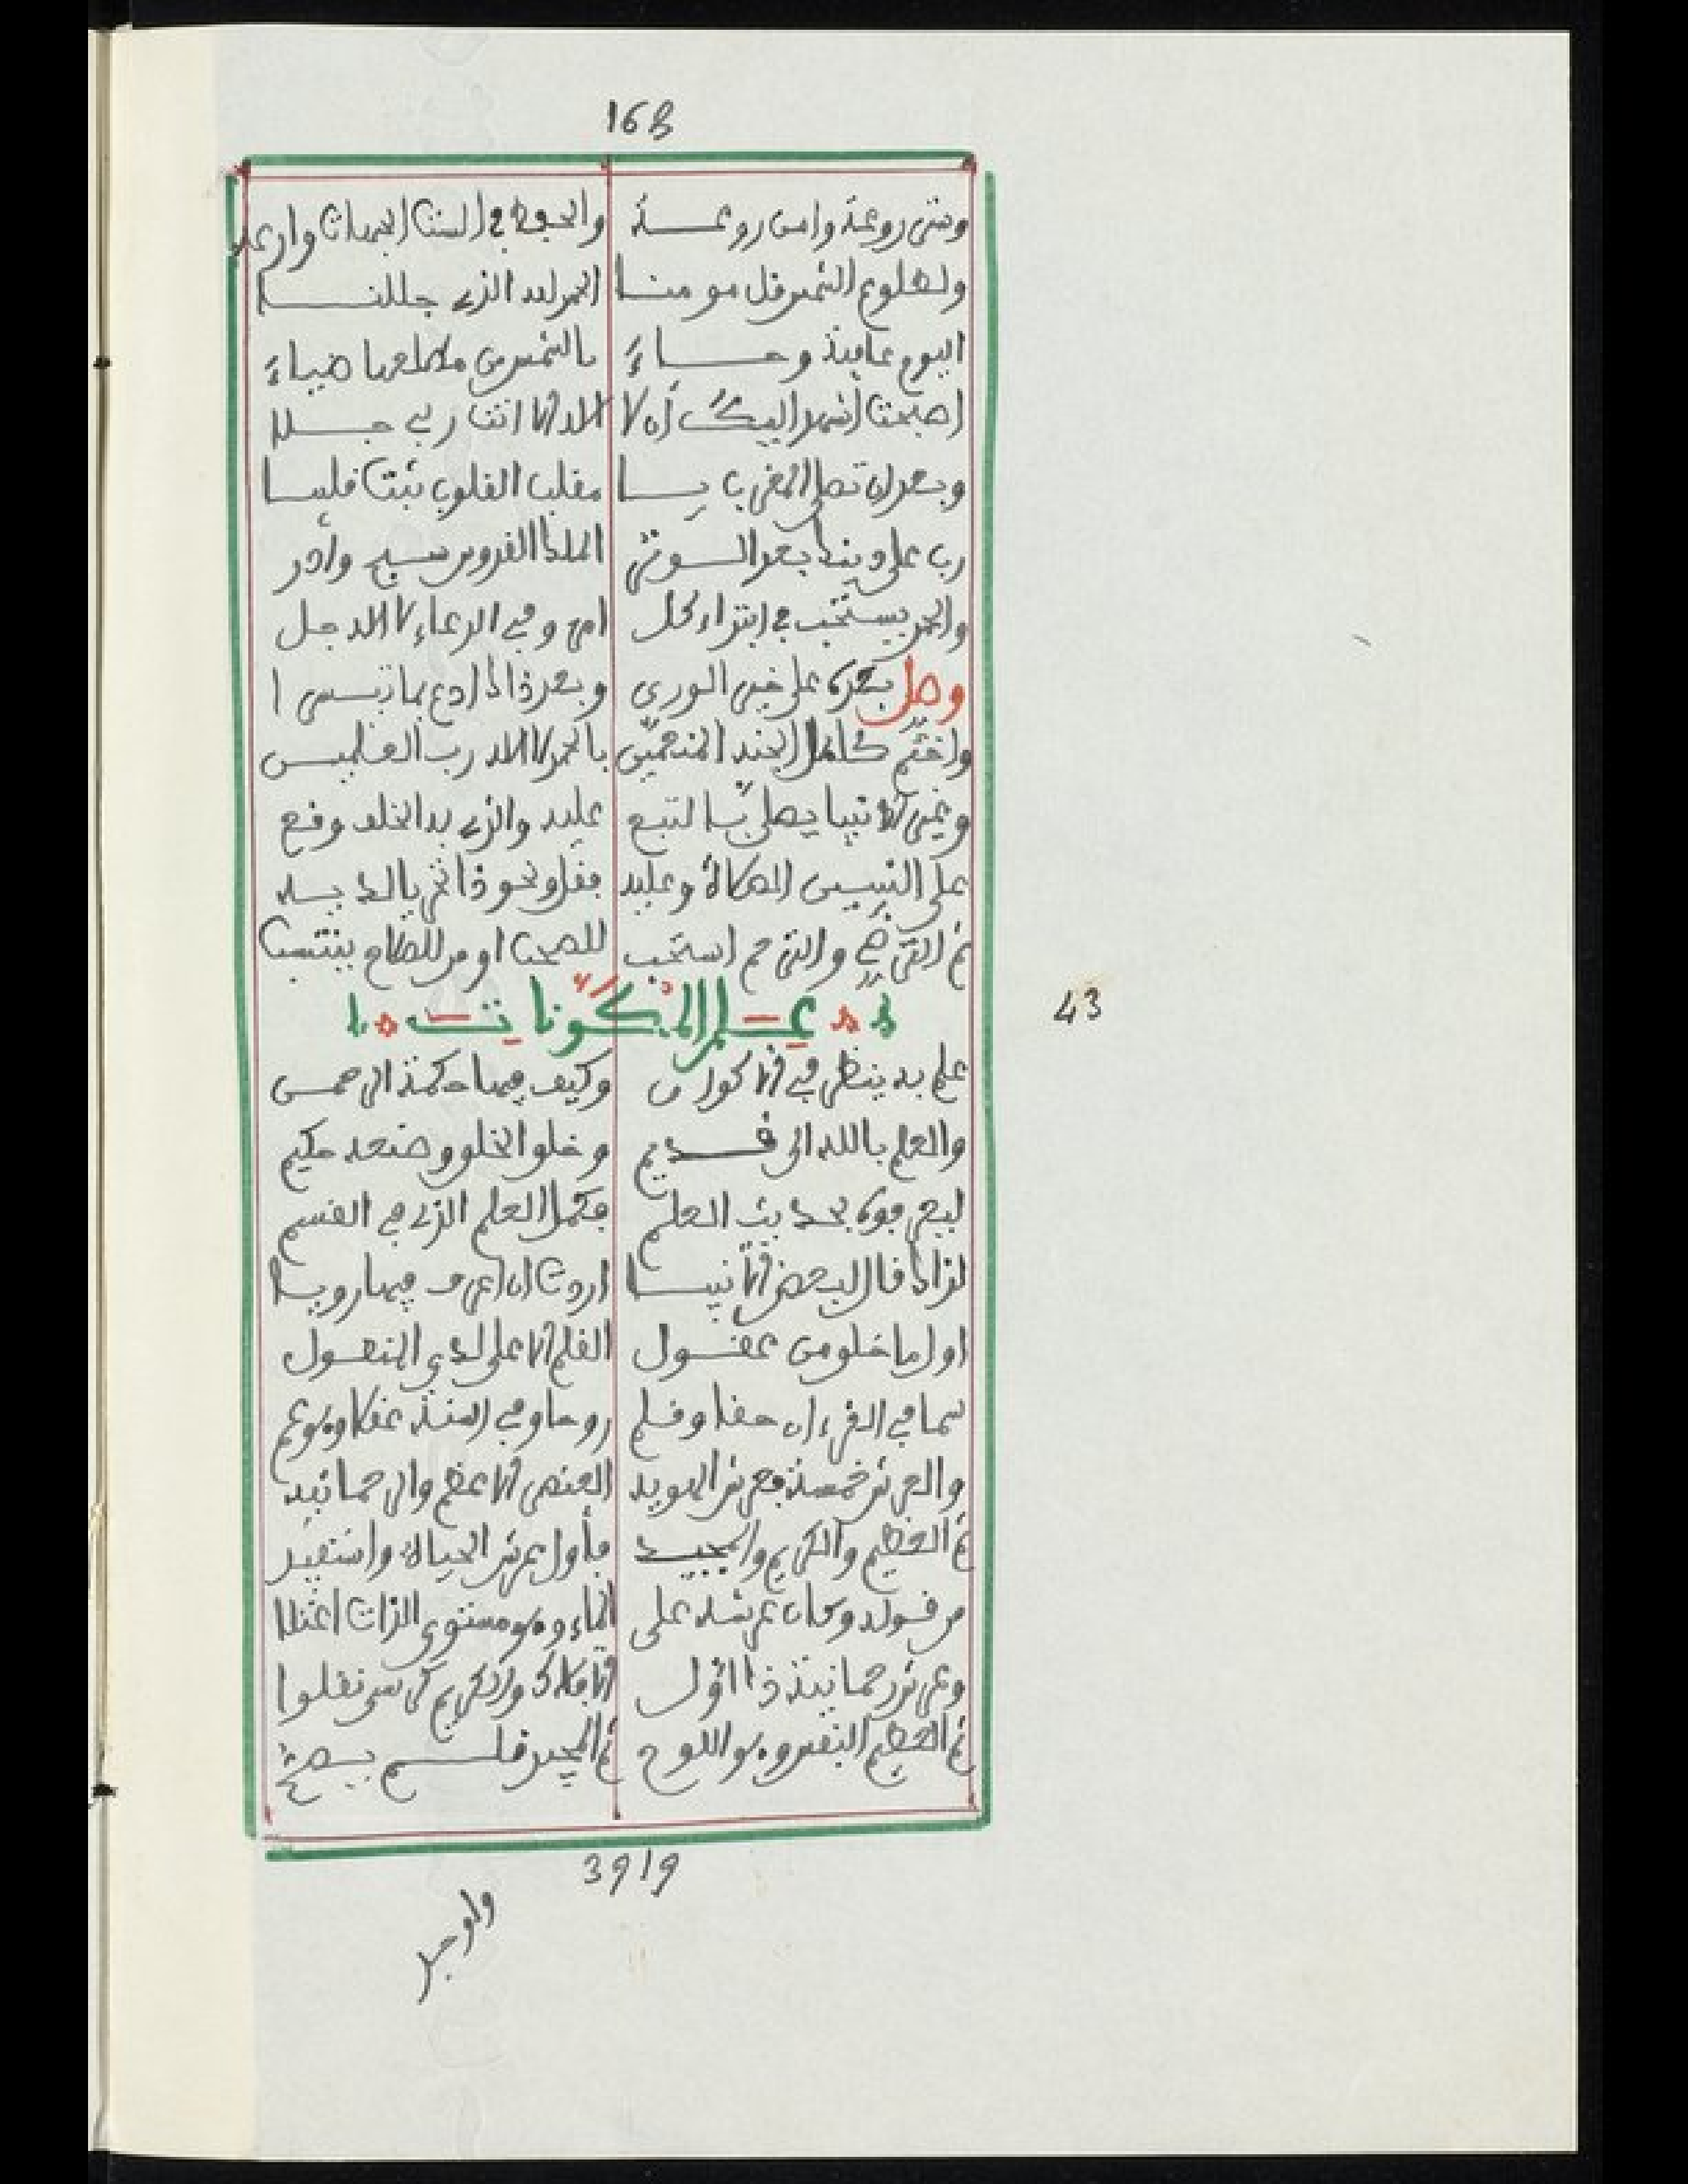 168
وستر روعة وامن روعة والحفظ في الست الجهات وارعه
ولطلوع الشمس قل مومنا الحمد لله الذي جللنا
اليوم عافية وجاء بالشمس من مطلعها ضياء
اصبحت اشهد اليك أن لا اله الا انت ربي جلا
وبعد ان تصلي المغرب يا مقلب القلوب ثبت قلبيا
رب على دينك بعد السوتر الملك القدوس سبح وادر
والحمد يستحب في ابتداء كل امر وفي الدعاء لله جل
وصل بعده على خير الورى وبعد ذاك ادع بما تيسرا
واختم كاهل الجنة المنعمين بالحمد لله رب العلمين
وغير الانبيا يصلى بالتبع عليه والذي به الخلف وقع
على النبيين الصلاة وعليه فقل ونحو ذا تمر بالديه
ثم الترضي والترحم استحب للصحب او من للصلاح ينتسب
علم المكونات
43
علم به ينظر في الاكوان وكيف فيها حكمة الرحمن
والعلم بالله الى قديم وخلق الخلق وصنعه حكيم
ليعرفوه بحديث العلم فكمل العلم الذي في القسم
لذاك قال لبعض الانبيا اردت ان اعرف فيما رويا
اول ما خلق من عقول القلم الاعلى لدى المنقول
سما في القرءان حقا وقلم روحا وفي السنة عقلا وهو عم
والعرش خمسة فعرش الهوية العنصر الاعظم والرحمانية
ثم العظيم والكريم والمجيد فأول عرش الحياة واستفيد
من قوله وكان عرشه على الماء وهو مستوى الذات اعتلا
وعرش رحمانية ذا اول الافلاك والكريم كرسي نقلوا
ثم العظيم النفس وهو اللوح ثم المجيد قلم يصح
3919
ولوجد